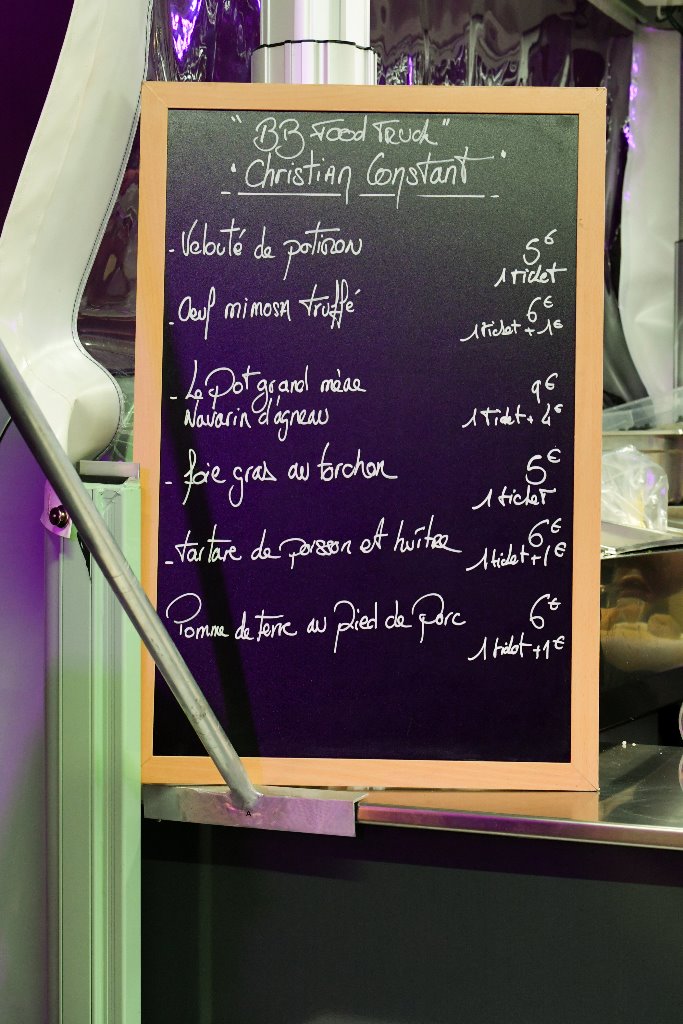 " BB Food Truck "
" Christian Constant "
- Velouté de potiron 5€
1 ticket
- Oeuf mimosa truffé 6€
1 ticket + 1€
- Le Pot grand mère 9€
Navarin d'agneau 1 ticket + 4€
- foie gras au torchon 5€
1 ticket
- tartare de poisson et huître 6€
1 ticket + 1€
Pomme de terre au pied de porc 6€
1 ticket + 1€